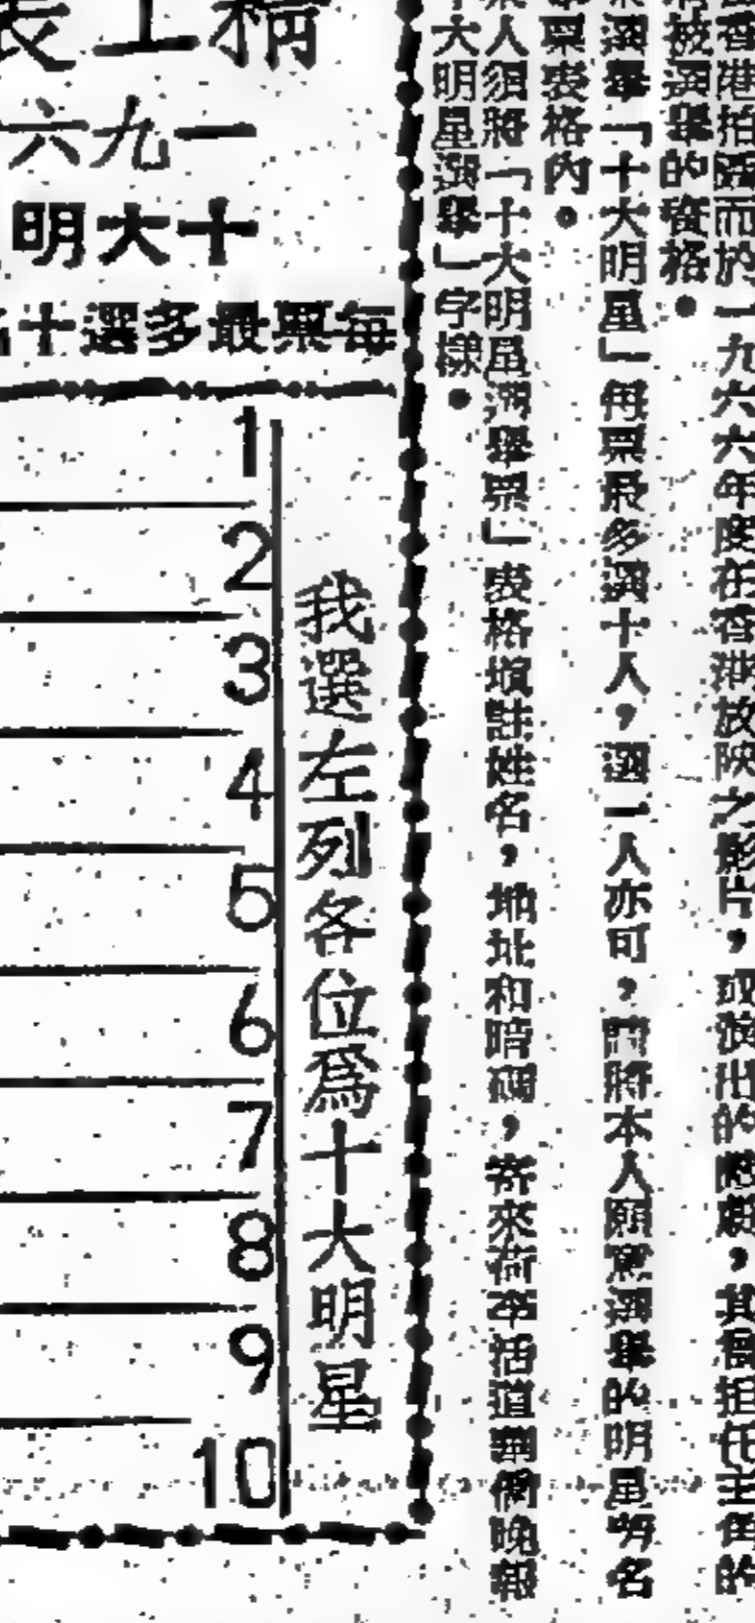 香港拍攝而於一九六六年度在香港放映之影片，或演出的戲劇，其曾担任主角的
被選舉的資格。
選舉「十大明星」每票最多選十人，選一人亦可，請將本人願意選舉的明星芳名
票表格內。
人須將「十大明星選舉票」表格填註姓名，地址和暗碼，寄來荷李活道華僑晚報
十大明星選舉」字樣。
一九六
十大明
每票最多選十名
我選左列各位爲十大明星
1
2
3
4
5
6
7
8
9
10